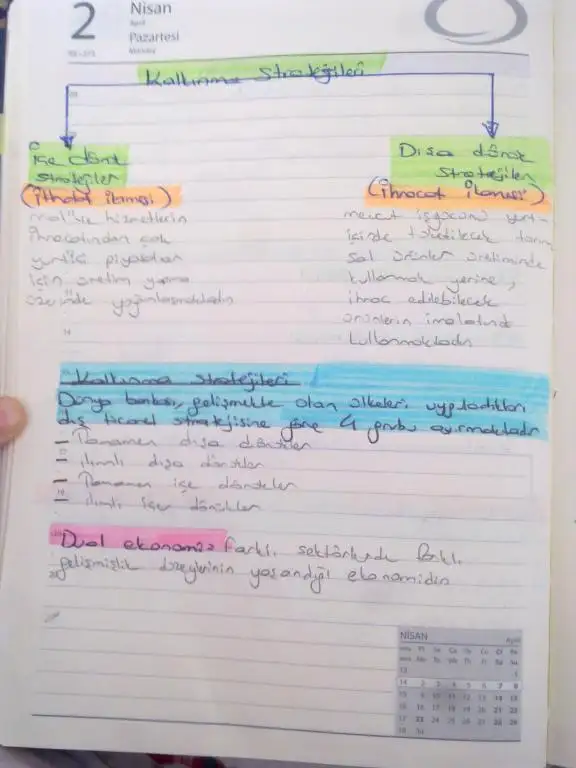 2
Nisan
April
Pazartesi
Monday
Kalkınma Stratejileri
İçe dönük
stratejiler
(İthalat ikamesi)
mal ve hizmetlerin
ihracatından çok
yurtiçi piyasalar
için üretim yapma
üzerinde yoğunlaşmaktadır
Dışa dönük
stratejiler
(İhracat ikamesi)
mevcut işgücünü yurt-
içinde tüketilecek tarım
sal ürünler üretiminde
kullanmak yerine,
ihraç edilebilecek
ürünlerin imalatında
kullanmaktadır
Kalkınma stratejileri
Dünya bankası, gelişmekte olan ülkeleri uyguladıkları
dış ticaret stratejisine göre 4 gruba ayırmaktadır
- Tamamen dışa dönükler
- ılımlı dışa dönükler
- Tamamen içe dönükler
- ılımlı içe dönükler
Dual ekonomi: farklı sektörlerde farklı
gelişmişlik düzeylerinin yaşandığı ekonomidir
NİSAN April
13 1
14 2 3 4 5 6 7 8
15 9 10 11 12 13 14 15
16 16 17 18 19 20 21 22
17 23 24 25 26 27 28 29
18 30